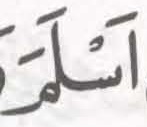 اَسْلَمَ